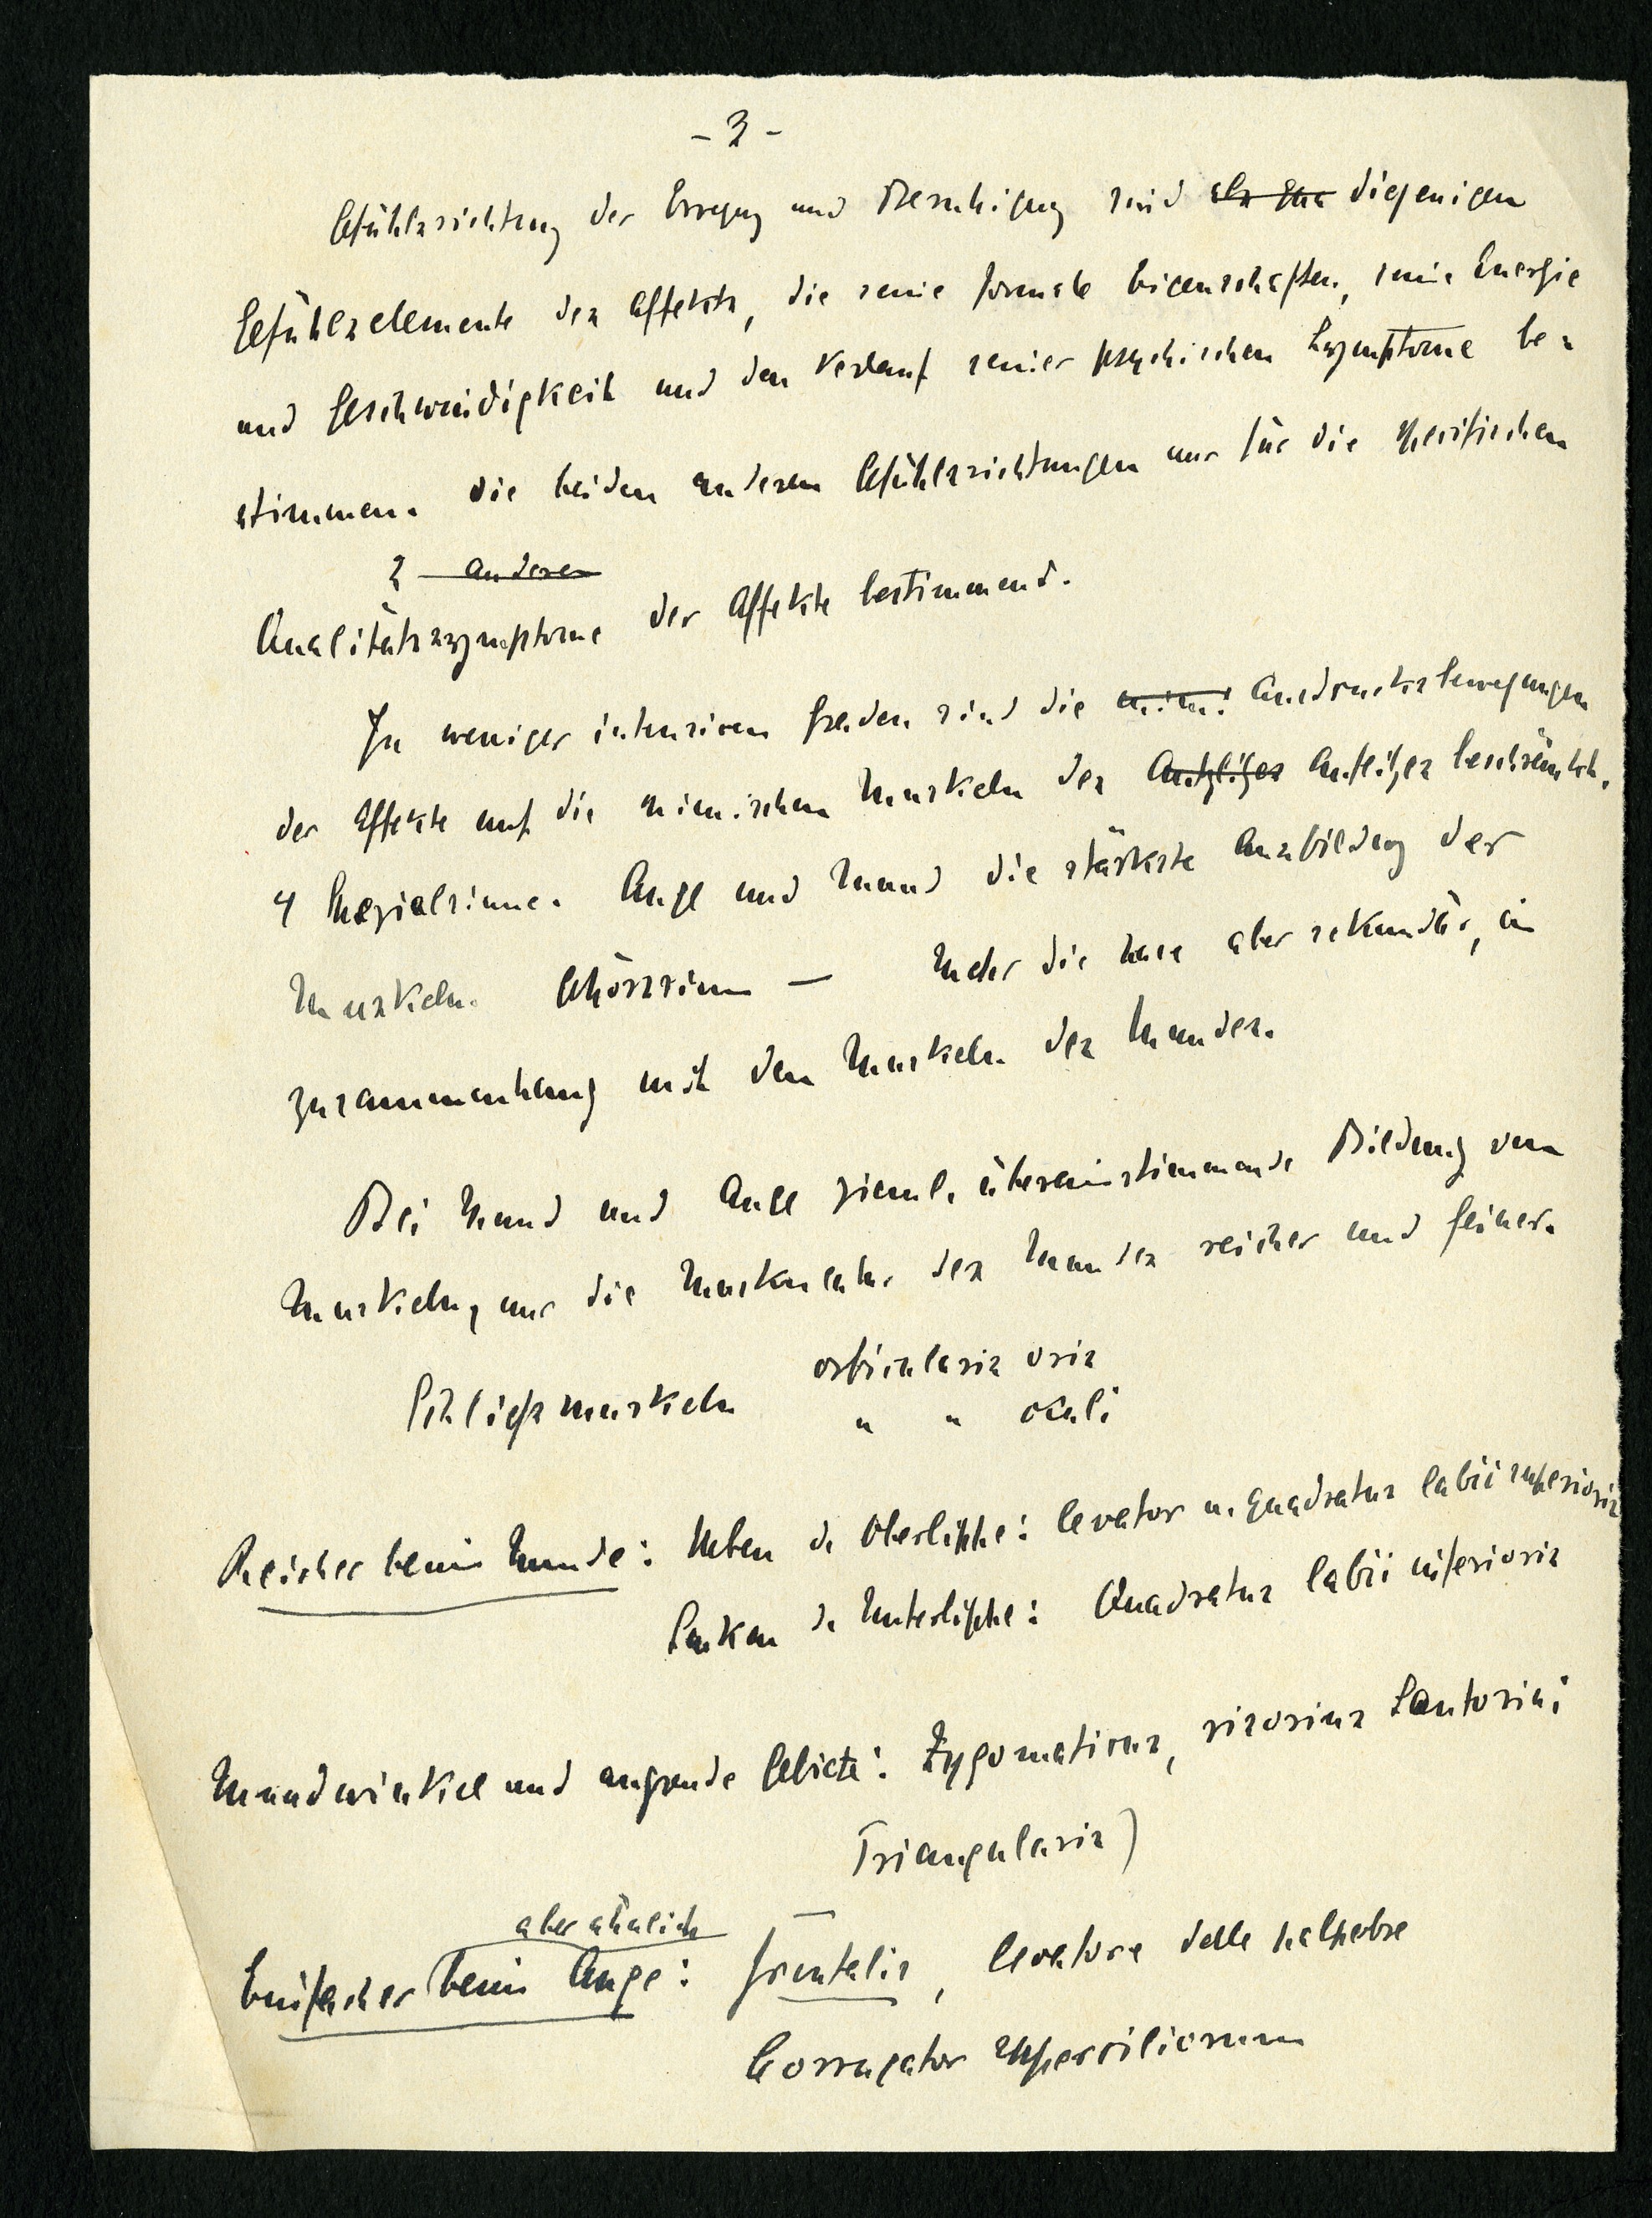 - 3 -
Gefühlsrichtung der Erregung und Beruhigung sind diejenigen
Gefühlselemente des Affekts, die seine formale Eigenschaften, seine Energie
und Geschwindigkeit und den Verlauf seiner psychischen Symptome be-
stimmen. Die beiden anderen Gefühlsrichtungen nur für die spezifischen
2 anderen
Qualitätssymptome der Affekte bestimmend.
In weniger intensiven Graden sind die mim. Ausdrucksbewegungen
der Affekte auf die mimischen Muskeln des Antlitzes beschränkt.
4 Spezialsinne. Auge und Mund die stärkste Ausbildung der
Muskeln. Gehörsinn — Mehr die Nase aber sekundär, im
Zusammenhang mit den Muskeln des Mundes.
Bei Mund und Auge zieml. übereinstimmende Bildung von
Muskeln, nur die Muskulatur des Mundes reicher und feiner.
Schließmuskeln orbicularis oris
" " okuli
Reicher beim Munde: Heben d. Oberlippe: levator u. quadratus labii superioris
Senken d. Unterlippe: Quadratus labii inferioris
Mundwinkel und angrende Gebiete: Zygomaticus, risorius Santorini
Triangularis)
aber ähnlich
Einfacher beim Auge: frontalis, levatore delle palpebre
Corrugator superciliorum